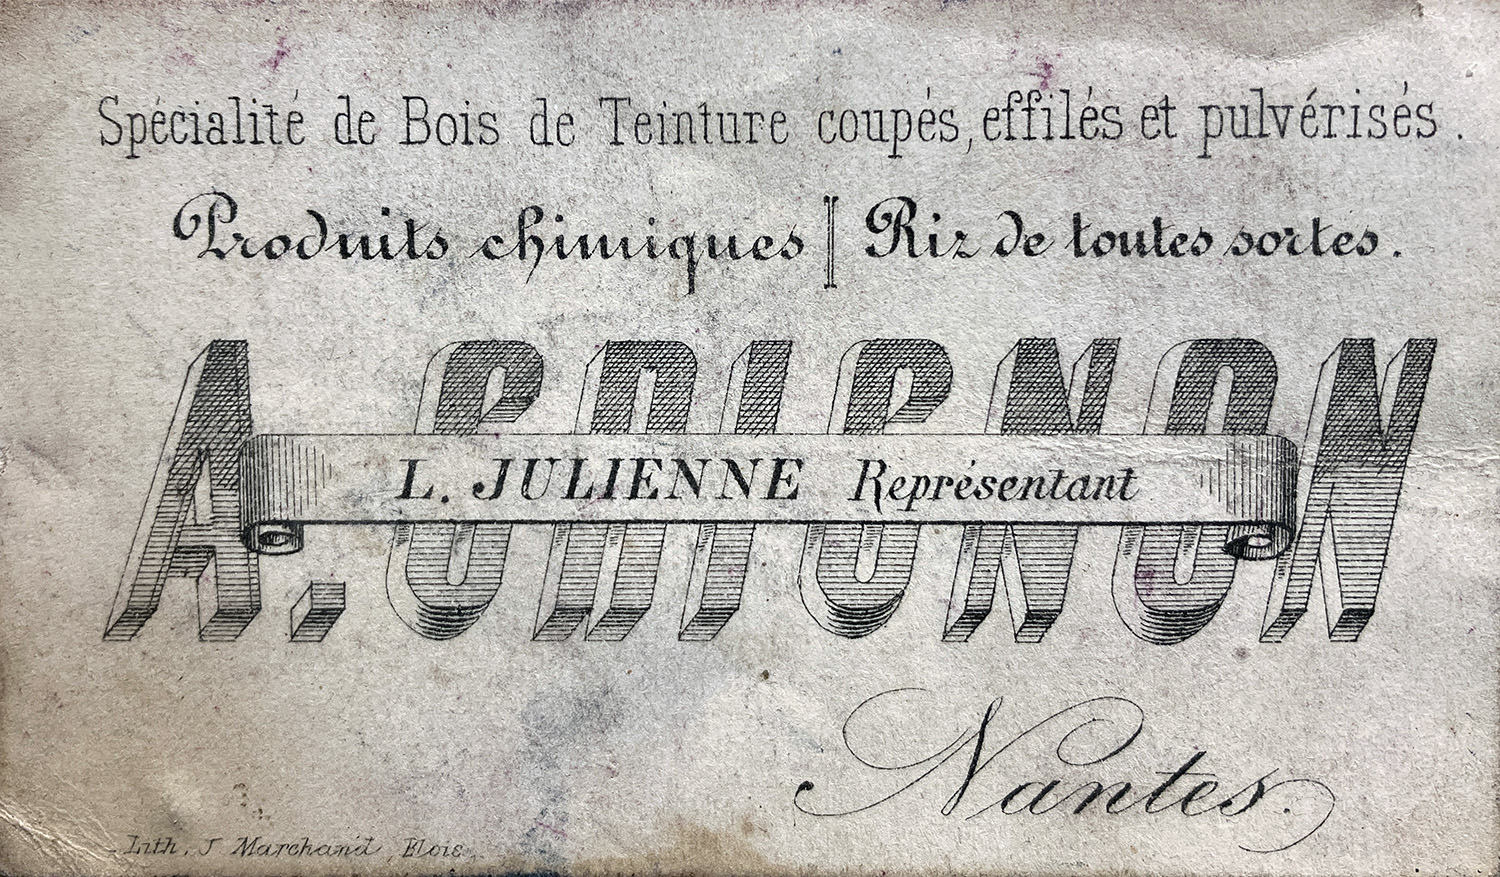 Spécialité de Bois de Teinture coupés, effilés et pulvérisés.
Produits chimiques | Riz de toutes sortes.
A. GRIGNON
L. JULIENNE Représentant
Nantes.
Lith. J Marchand, Blois.